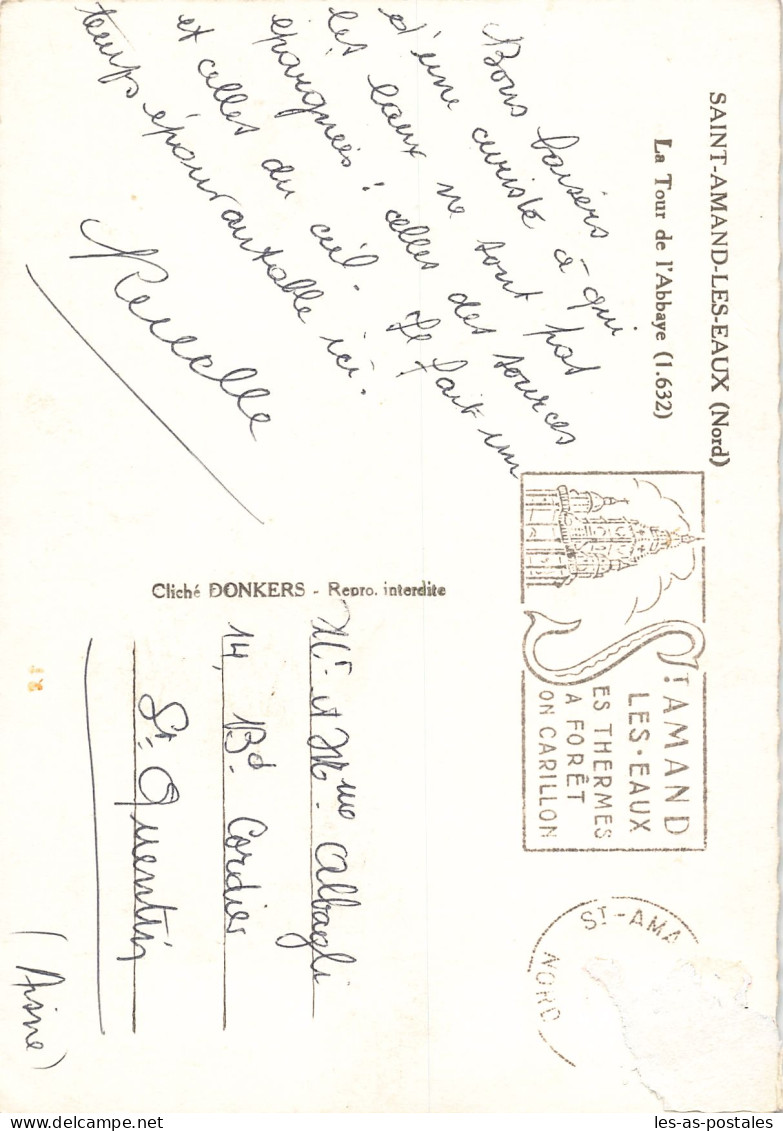 SAINT-AMAND-LES-EAUX (Nord)
La Tour de l'Abbaye (1.632)
Bons baisers
d'une curiste à qui
les eaux ne sont pas
épargnées : celles des sources
et celles du ciel. Il fait un
temps épouvantable ici.
Cliché DONKERS - Repro. interdite
ST AMAND
LES-EAUX
ES THERMES
A FORÊT
ON CARILLON
ST-AMA
NORD
Mr et Mme Albagli
14, Bd Cordier
St. Quentin
(Aisne)
les-as-postales.com